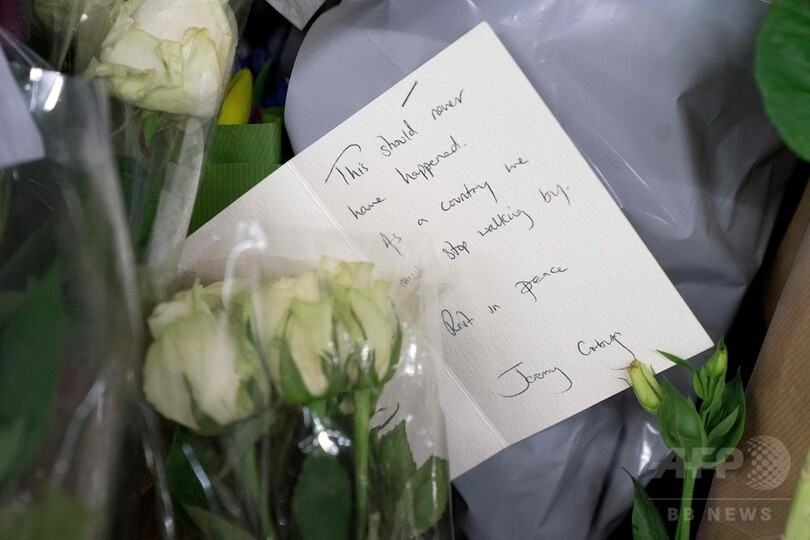 This should never
have happened.
As a country we
must stop walking by.
Rest in peace
Jeremy Corbyn
AFP
BB NEWS